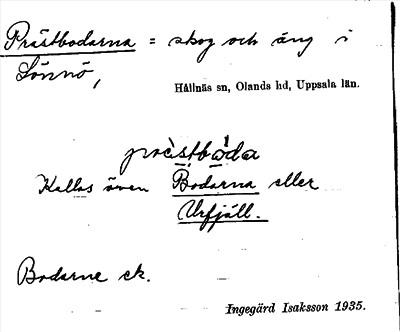 Prästbodarna = skog och äng i
Lönnö,
Hållnäs sn, Olands hd, Uppsala län.
præ̀stbɷ́da
Kallas även Bodarna eller
Urfjäll.
Bodarne ek.
Ingegärd Isaksson 1935.